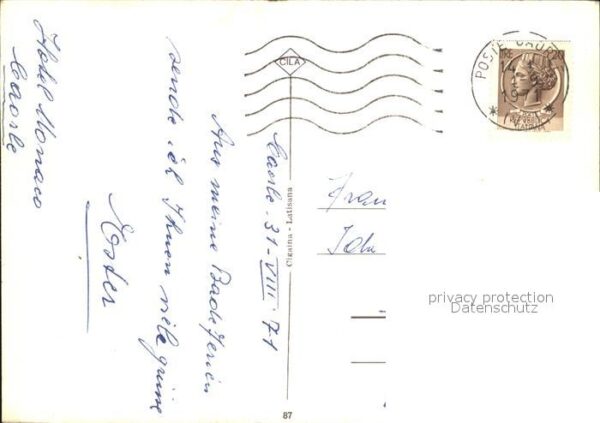 Hotel Monaco
Caorle
Caorle - 31-VIII 71
Aus meine Badeferien
sende ich Ihnen viele grüsse
Ester
Cigaina - Latisana
CILA
POSTE CAORLE
(VE)
87
privacy protection
Datenschutz